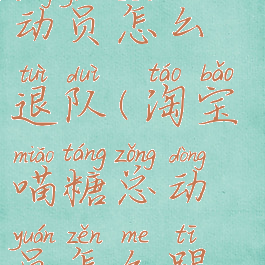 动员怎么
tuì duì táo bǎo
退队(淘宝
miāo táng zǒng dòng
喵糖总动
yuán zěn me tī
员怎么踢